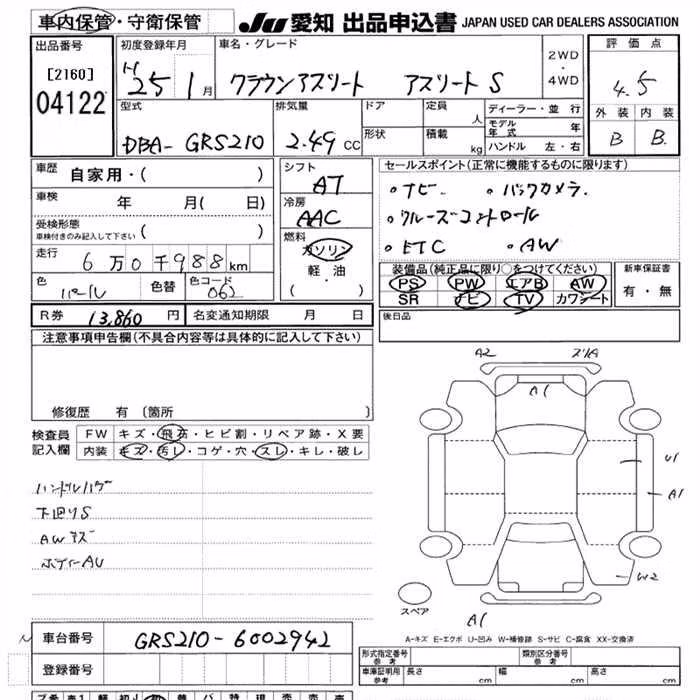 車内保管・守衛保管 JU 愛知 出品申込書 JAPAN USED CAR DEALERS ASSOCIATION
出品番号 [2160] 04122
初度登録年月 H 25 1月
車名・グレード クラウンアスリート アスリートS
2WD・4WD
評価点 4.5
外装 内装
B B.
型式 DBA- GRS210
排気量 2.49 CC
ドア 形状
定員 人
積載 kg
ディーラー・並行
モデル年式 年
ハンドル 左・右
車歴 自家用・( )
車検 年 月( 日)
受検形態 車検付きのみ記入して下さい ( )
走行 6万0千988km
色 パール 色替 色コード 062
シフト AT
冷房 AAC
燃料 ガソリン・軽油・( )
セールスポイント(正常に機能するものに限ります)
・ナビ. ・バックカメラ.
・クルーズコントロール
・ETC ・AW
装備品(純正品に限り○をつけてください)
PS PW エアB AW
SR ナビ TV カワシート
新車保証書 有・無
R券 13,860円 名変通知期限 月 日
後日品
注意事項申告欄(不具合内容等は具体的に記入して下さい)
修復歴 有 〔箇所 〕
検査員記入欄
FW キズ・飛石・ヒビ割・リペア跡・X要
内装 キズ・汚レ・コゲ・穴・スレ・キレ・破レ
ハンドルハゲ
下廻りS
AWキズ
ボディーAU
A2
A1
U1
A1
W2
A1
スペア
A-キズ E-エクボ U-凹み W-補修跡 S-サビ C-腐食 XX-交換済
車台番号 GRS210-6002942
登録番号
形式指定番号 参考
類別区分番号 参考
車庫証明用 参考 長さ cm 幅 cm 高さ cm